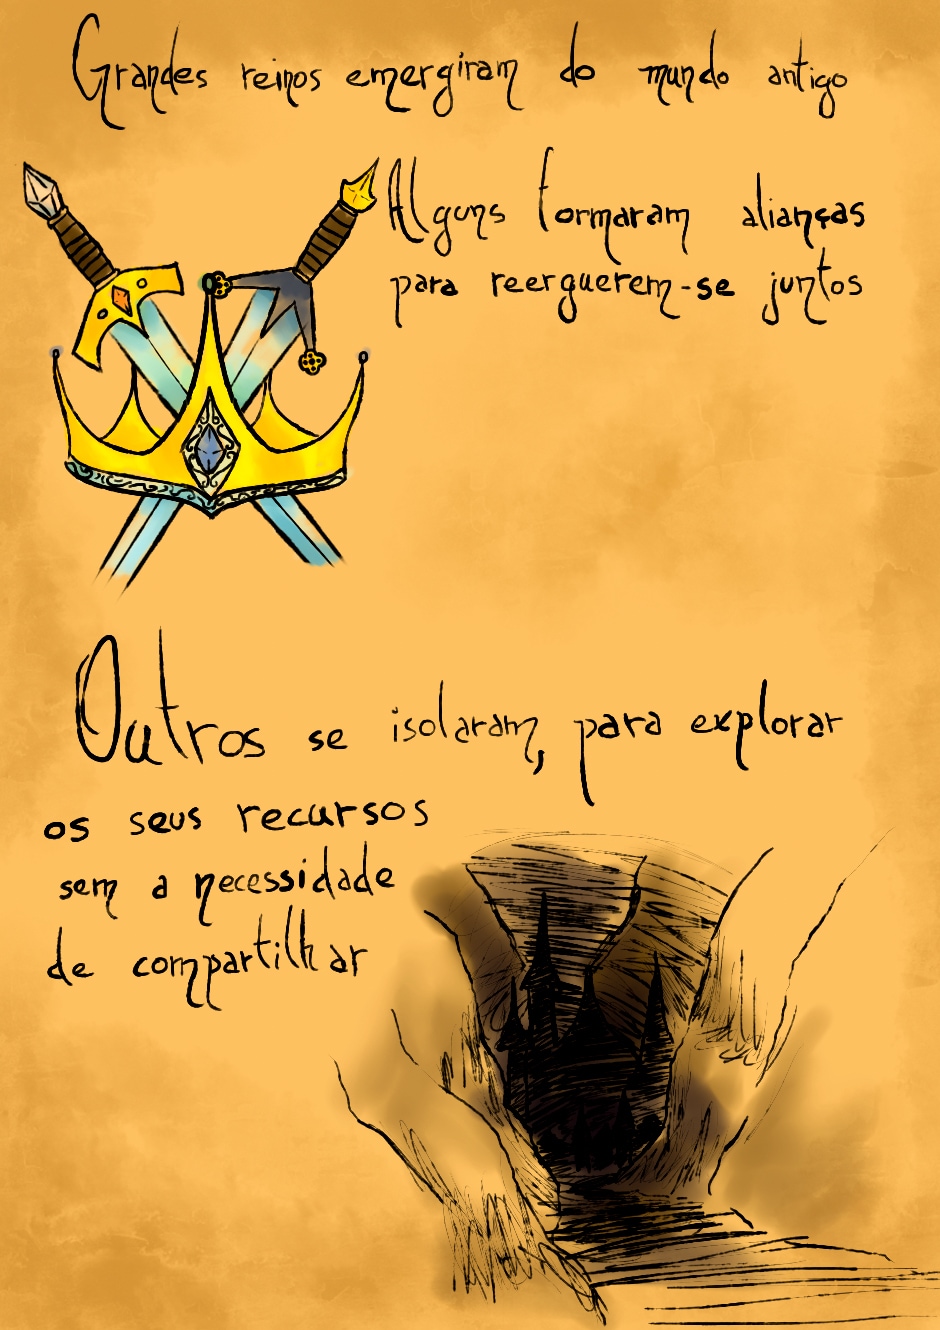 Grandes reinos emergiram do mundo antigo
Alguns formaram alianças
para reerguerem-se juntos
Outros se isolaram, para explorar
os seus recursos
sem a necessidade
de compartilhar